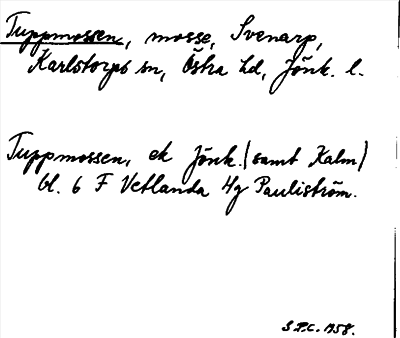 Tuppmossen, mosse, Svenarp,
Karlstorps sn, Östra hd, Jönk. l.
Tuppmossen, ek Jönk. (samt Kalm)
bl. 6 F Vetlanda Hg Pauliström.
S.P.C. 1958.